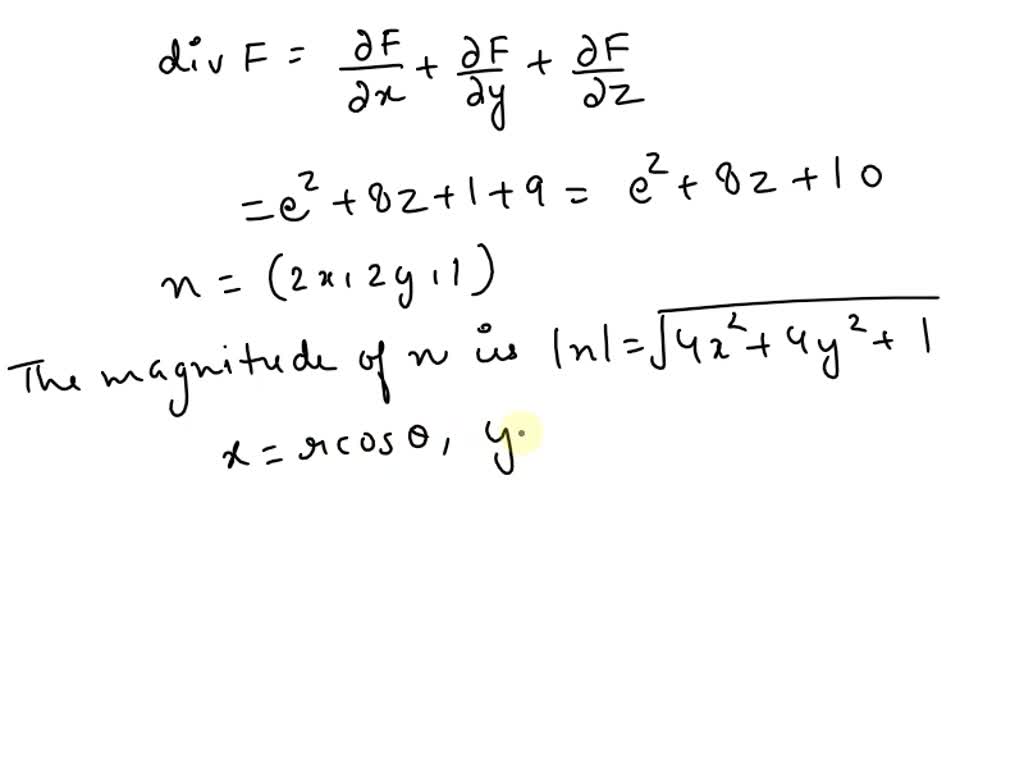 div F = ∂F/∂x + ∂F/∂y + ∂F/∂z
= e² + 8z + 1 + 9 = e² + 8z + 10
n = (2x, 2y, 1)
The magnitude of n is |n| = √(4x² + 4y² + 1)
x = r cos θ, y